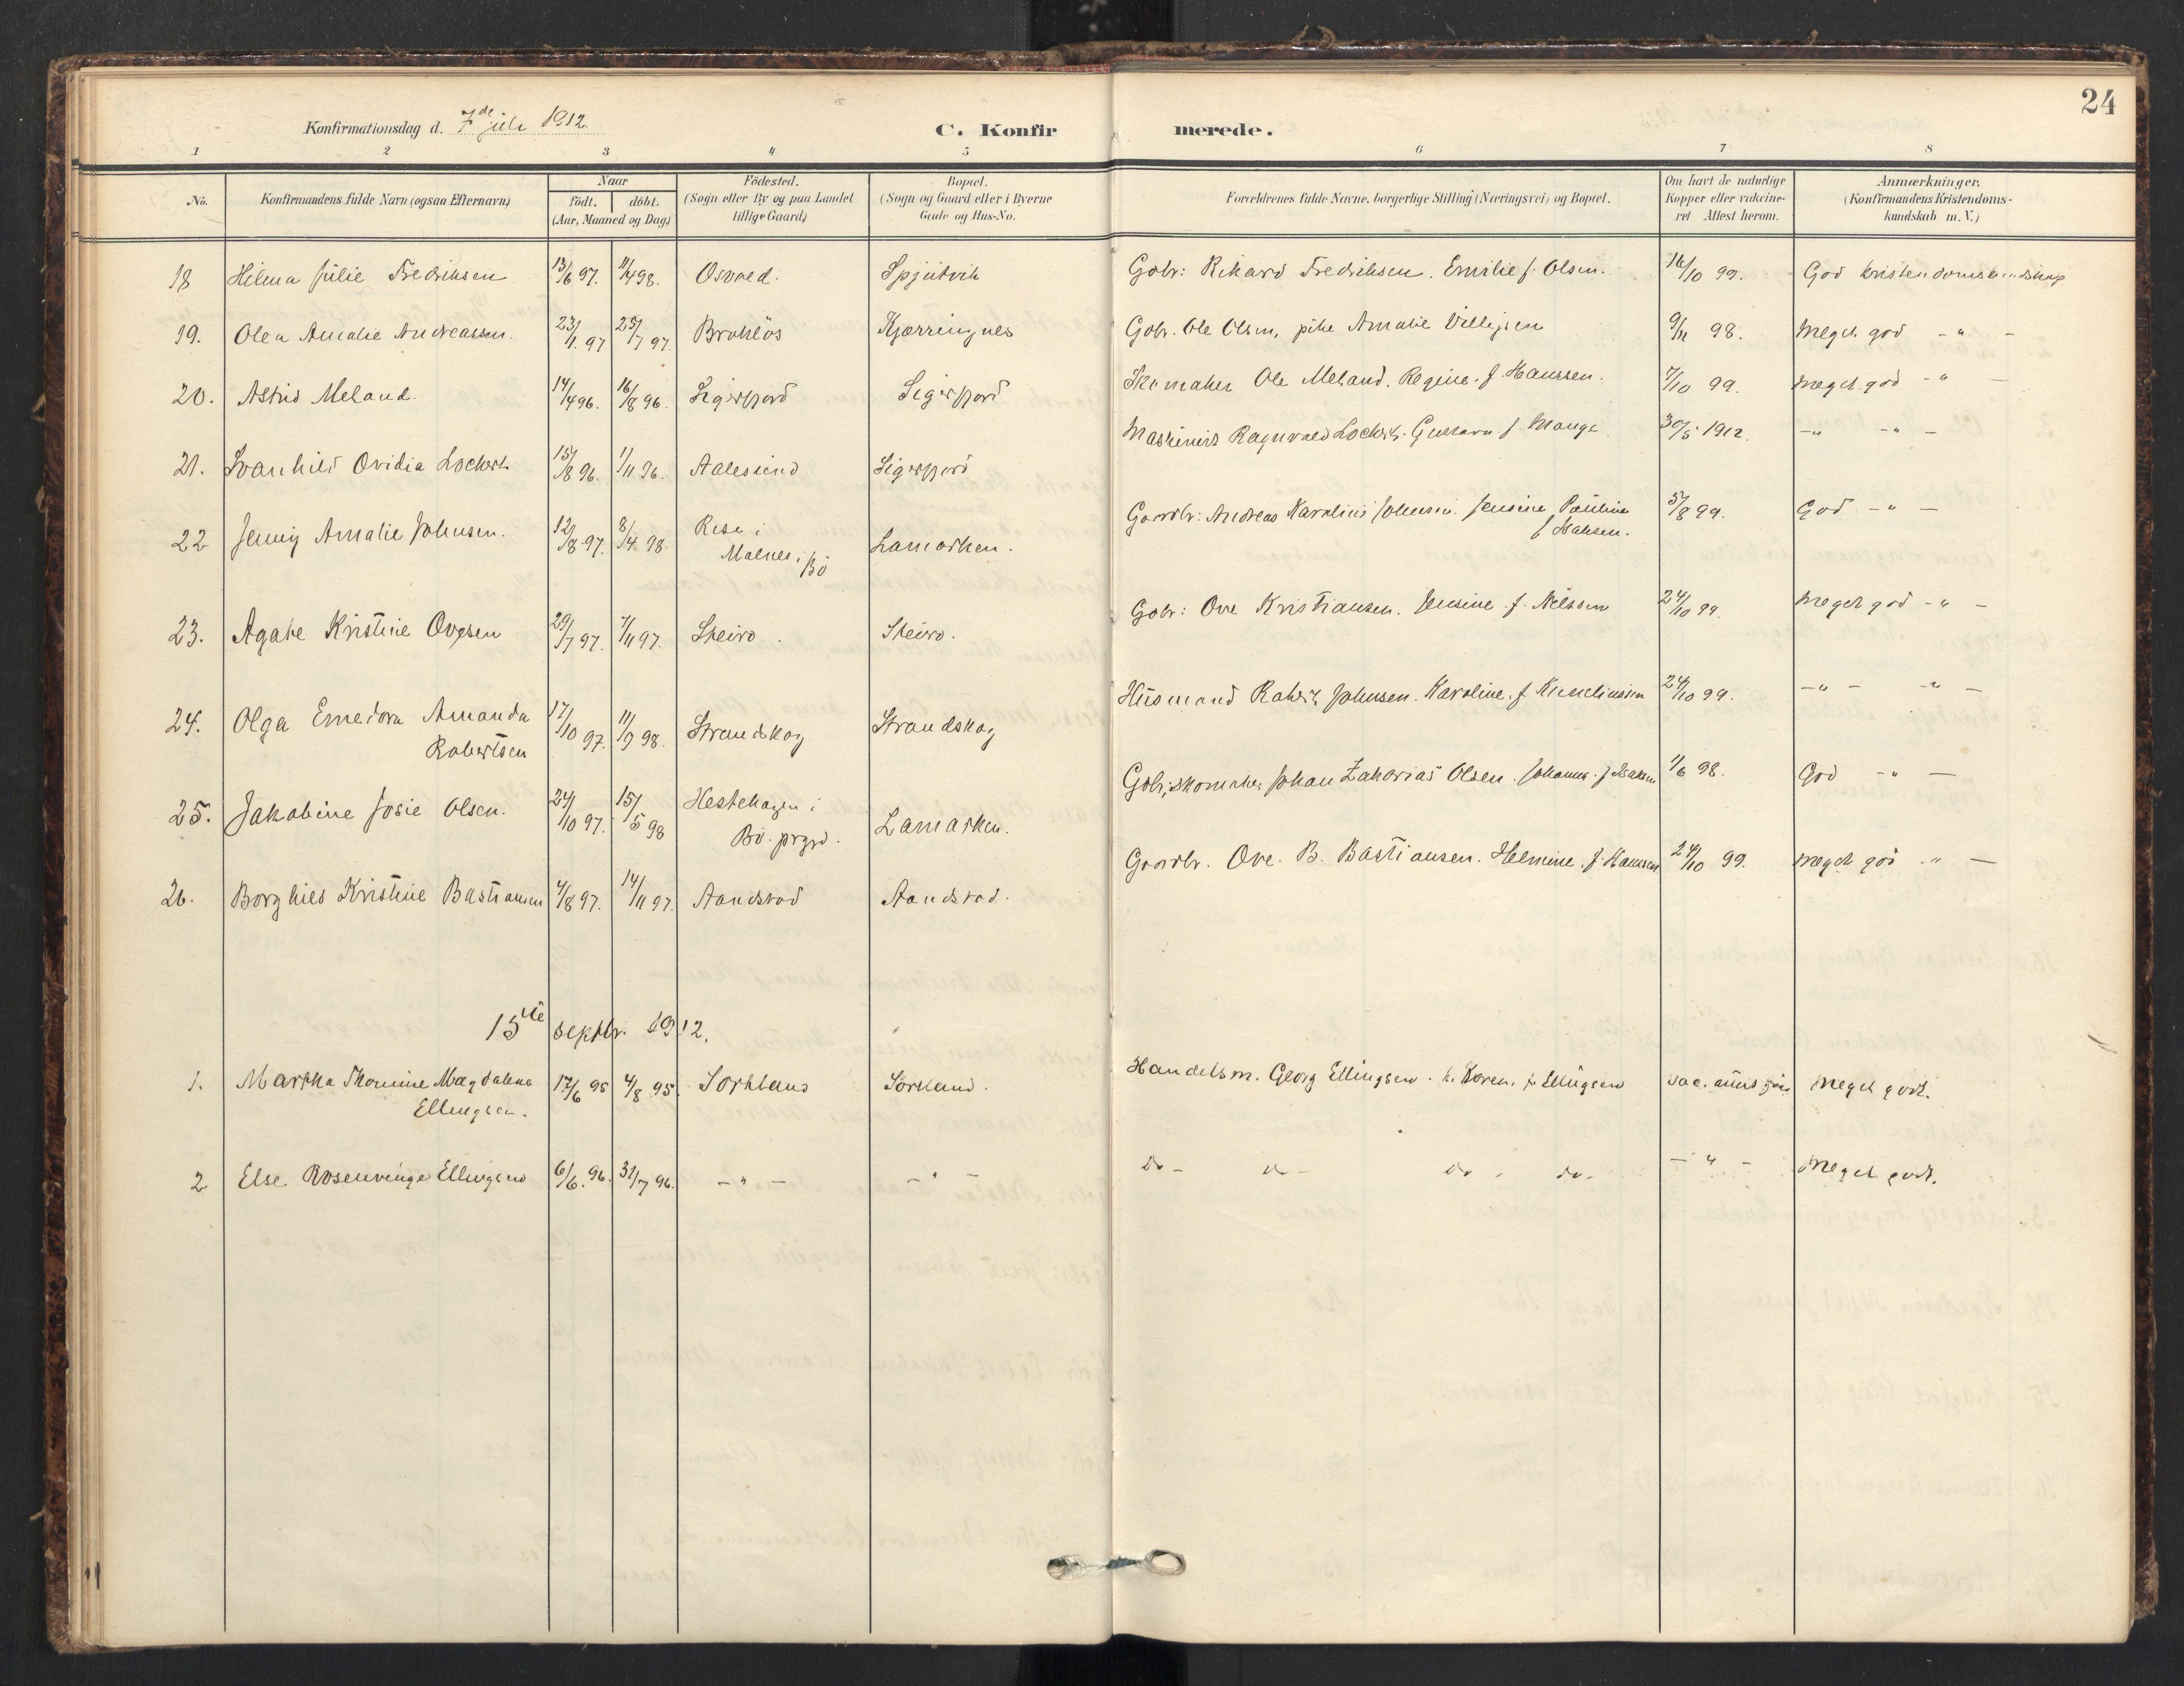 24
Konfirmationsdag d. 7de juli 1912.
C. Konfirmerede.
1 2 3 4 5 6 7 8
No. Konfirmandens fulde Navn (ogsaa Efternavn) Naar født. døbt. (Aar, Maaned og Dag) Fødested. (Sogn eller By og paa Landet tillige Gaard) Bopæl. (Sogn og Gaard eller i Byerne Gade og Hus-No. Forældrenes fulde Navne, borgerlige Stilling (Næringsvei) og Bopæl. Om havt de naturlige Kopper eller vakcineret Attest herom. Anmærkninger. (Konfirmandens Kristendomskundskab m. V.)
18 Hilma Julie Fredriksen 13/6 97. 11/4 98. Osvold. Spjutvik Gbr: Rikard Fredriksen. Emilie f. Olsen. 16/10 99. God kristendomskundskap
19. Olea Amalie Andreassen. 23/1. 97 25/7 97. Brokløs Kjerringnes Gbr. Ole Olsen, pike Amalie 9/11 98. Meget god - " -
20. Astrid Meland. 14/4 96. 16/8 96. Sigerfjord Sigerfjord Skomaker Ole Meland. Regine f. Hanssen. 7/10 99. meget god - " -
21. Svanhild Ovidia Lockert 15/8 96. 1/11 96. Aalesund Sigerfjord Maskinist Ragnvald Lockert. Gustava f Mange 30/5 1912. - " - " -
22 Jenny Amalie Johnsen. 12/8 97. 8/4 98. Rise i Malnes i Bø Lamarken. Gaardbr: Andreas Karolius Johnsen. Jensine Pauline f Hansen. 5/8 99. God - " -
23. Agate Kristine Ovesen 29/7 97. 7/11 97. Steiro. Steiro. Gbr: Ove Kristiansen. Jensine f. Nilssen 24/10 99. meget god - " -
24. Olga Emedora Amanda Robertsen 17/10 97. 11/9 98. Strandskog Strandskog Husmand Robert Johnsen. Karoline f. Kornelinssen 24/10 99. - " - - " -
25. Jakobine Josie Olsen. 24/10 97. 15/5 98 Hestehagen i Bø. prgjd. Lamarken. Gbr, skomaker Johan Zakarias Olsen. Johanna f Isaksen 1/6 98. God - " -
26. Borghild Kristine Bastiansen 4/8 97. 14/11 97. Aandstad Aandstad. Gaardbr. Ove. B. Bastiansen. Helmine f Hanssen 24/10 99. meget god - " -
15de septbr. 1912.
1. Martha Thomine Magdalena Ellingsen. 17/6 95 4/8 95. Sortland Sortland. Handelsm. Georg Ellingsen. h. Karen. f. Ellingsen vac. Meget godt.
2 Else Rosenvinge Ellingsen 6/6. 96. 31/7 96. - " - - " - do - do - do - do. - " - Meget godt.